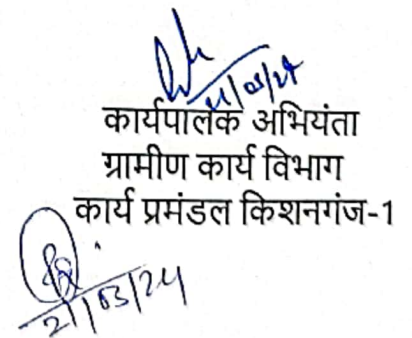 21/03/24
कार्यपालक अभियंता
ग्रामीण कार्य विभाग
कार्य प्रमंडल किशनगंज-1
21/03/24